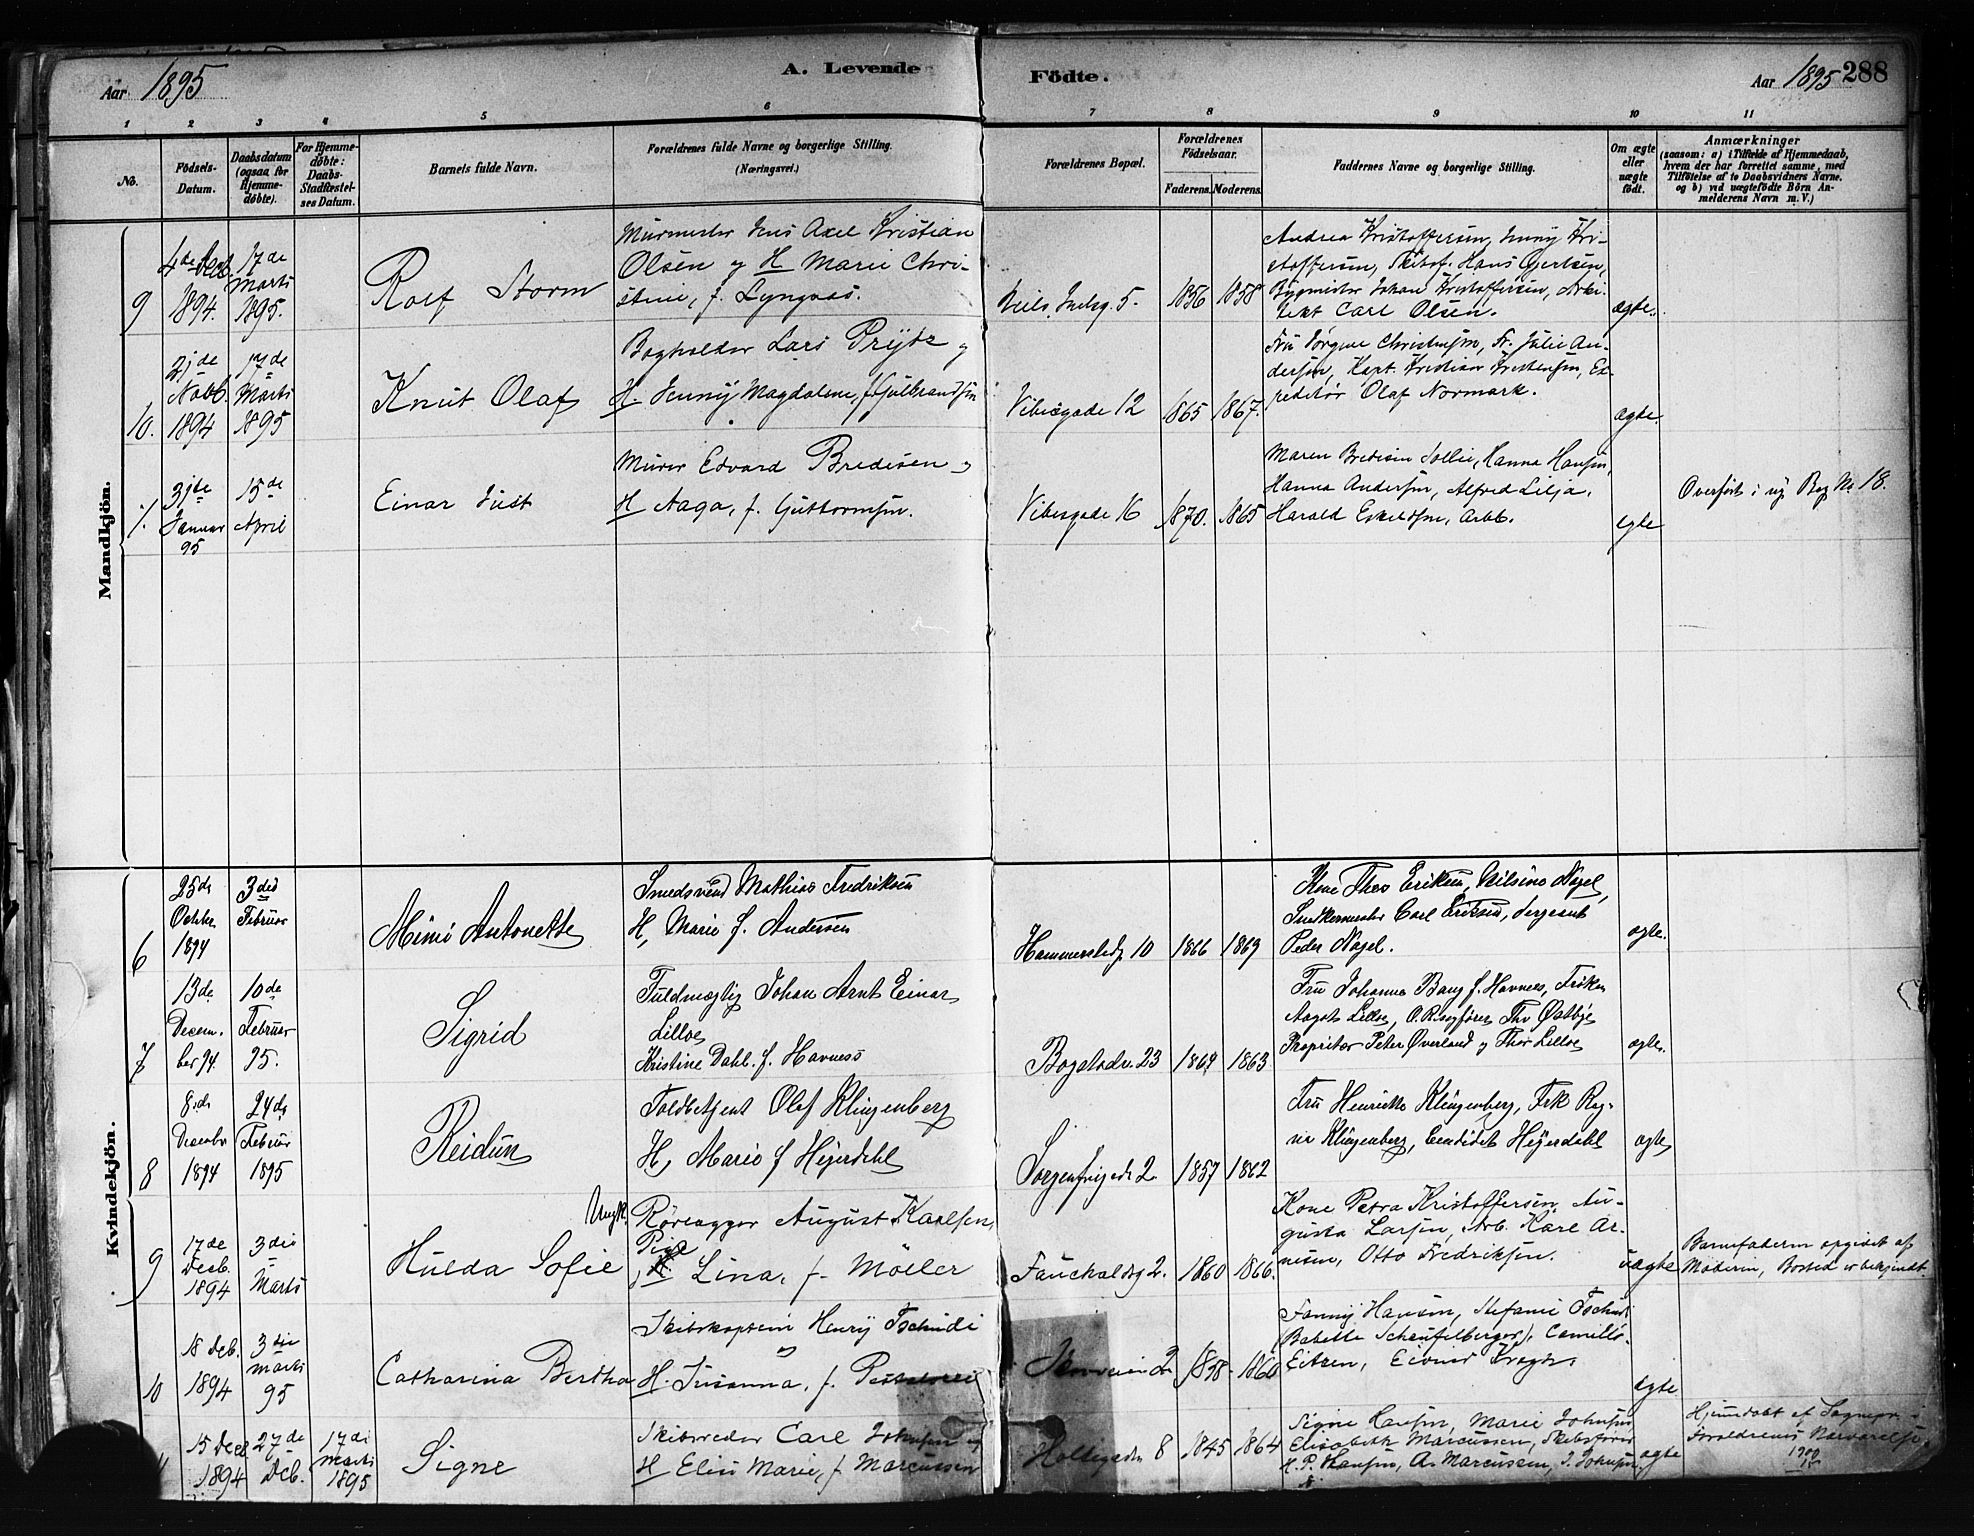 Aar 1895
A. Levende Födte.
Aar 1895 288
1 2 3 4 5 6 7 8 9 10 11
No.
Födsels-
Datum.
Daabsdatum
(ogsaa for
Hjemme-
døbte).
For Hjemme-
døbte:
Daabs-
Stadfæstel-
ses Datum.
Barnets fulde Navn.
Forældrenes fulde Navne og borgerlige Stilling.
(Næringsvei.)
Forældrenes Bopæl.
Forældrenes
Födselsaar.
Faderens. Moderens.
Faddernes Navne og borgerlige Stilling.
Om ægte
eller
uægte
födt.
Anmærkninger
(saasom: a) i Tilfælde af Hjemmedaab,
hvem der har forrettet samme, med
Tilföielse af to Daabsvidners Navne.
og b) ved uægtefödte Börn An-
melderens Navn m. V.)
Mandkjön.
9
4de Decb.
1894.
17de
Marts
1895.
Rolf Storm
Murmester Jens Axel Kristian
Olsen og H Marie Chri-
stine, f. Lyngaas.
Niels Juelsg. 5.
1856 1858
Andrea Kristoffersen, Jenny Kri-
stoffersen, Skibsf. Hans Gjertsen,
Bygmester Johan Kristoffersen, Arki-
tekt Carl Olsen.
ægte.
10.
2de
Novb.
1894
17de
Marts
1895
Knut Olaf
Bogholder Lars Prÿtz og
H. Jenny Magdalene, f. Gulbrandsen
Vibesgade 12
1865 1867.
Fru Jörgine Christensen, Fr. Julie An-
dersen, Kapt. Kristian Kristensen, Ex-
peditör Olaf Normark.
ægte.
31te
Januar
95
15de
April
Einar Just
Murer Edvard Bredesen og
H Aaga, f. Guttormsen.
Vibesgade 16
1870. 1865
Maren Bredesen Sollie, Hanna Hansen,
Hanna Andersen, Alfred Lilja,
Harald Eskildsen, Arbb.
egte
Overfört i ny Bog No 18.
Kvindekjön.
6
25de
October
1894
3die
Februar
Mimi Antonette
Smedsvend Mathias Fredriksen
H, Marie f. Andersen
Hammerstadg 10
1866 1869
Kone Thea Eriksen, Nilsine Nagel,
Snedkermester Carl Eriksen, Sergeant
Peder Nagel.
ægte.
7
13de
Decem-
ber 94.
10de
Februar
95.
Sigrid
Fuldmægtig Johan Arnt Einar
Lilloe
Kristine Dahl. f. Havness
Bogstadv. 23
1864 1863
Fru Johanna Bang f. Havness, Fröken
Aagot Lilloe, O.R.sagförer Thv Østbye
Proprietær Peter Øverland og Thor Lilloe
ægte.
8
8de
Decembr
1894
24de
Februar
1895
Reidun
Toldbetjent Olaf Klingenberg
H, Marie f Heÿerdahl
Sorgenfrigade 2.
1857 1862
Fru Henriette Klingenberg, Frk Rag-
na Klingenberg, Candidat Heÿerdahl
ægte
9
17de
Decb.
1894
3die
Marts
Hulda Sofie
Ungk. Rörlægger August Karlsen,
Pige
Lina, f. Möller
Fauchaldsg 2.
1860 1866.
Kone Petra Kristoffersen, Au-
gusta Larsen, Arb. Karl Ar-
nesen, Otto Fredriksen.
uægte
Barnefaderen opgivet af
Moderen, Bosted er bekjendt.
10
18 Decb.
1894
3die
Marts
95
Catharina Bertha
Skibskaptein Henrÿ Tschudi
H. Susanna, f.
2
1858 1860
Fanny Hansen, Stefanie Tschudi
(Babette Scheufelberger), Camilla
Eitzen, Eivind
ægte
15 Decb
1894
27de
Dcb.
17de
Marts
1895
Signe
Skibsreder Carl Johnsen og
H Elise Marie, f Marcussen
Holtegaden 8
1845 1864
Signe Hansen, Marie Johnsen
Elisabeth Marcussen, Skibsförer
H. P. Hansen, A. Marcussen, J. Johnsen.
ægte
Hjemdöbt af Sognepr. i
Forældrenes Nærværelse.